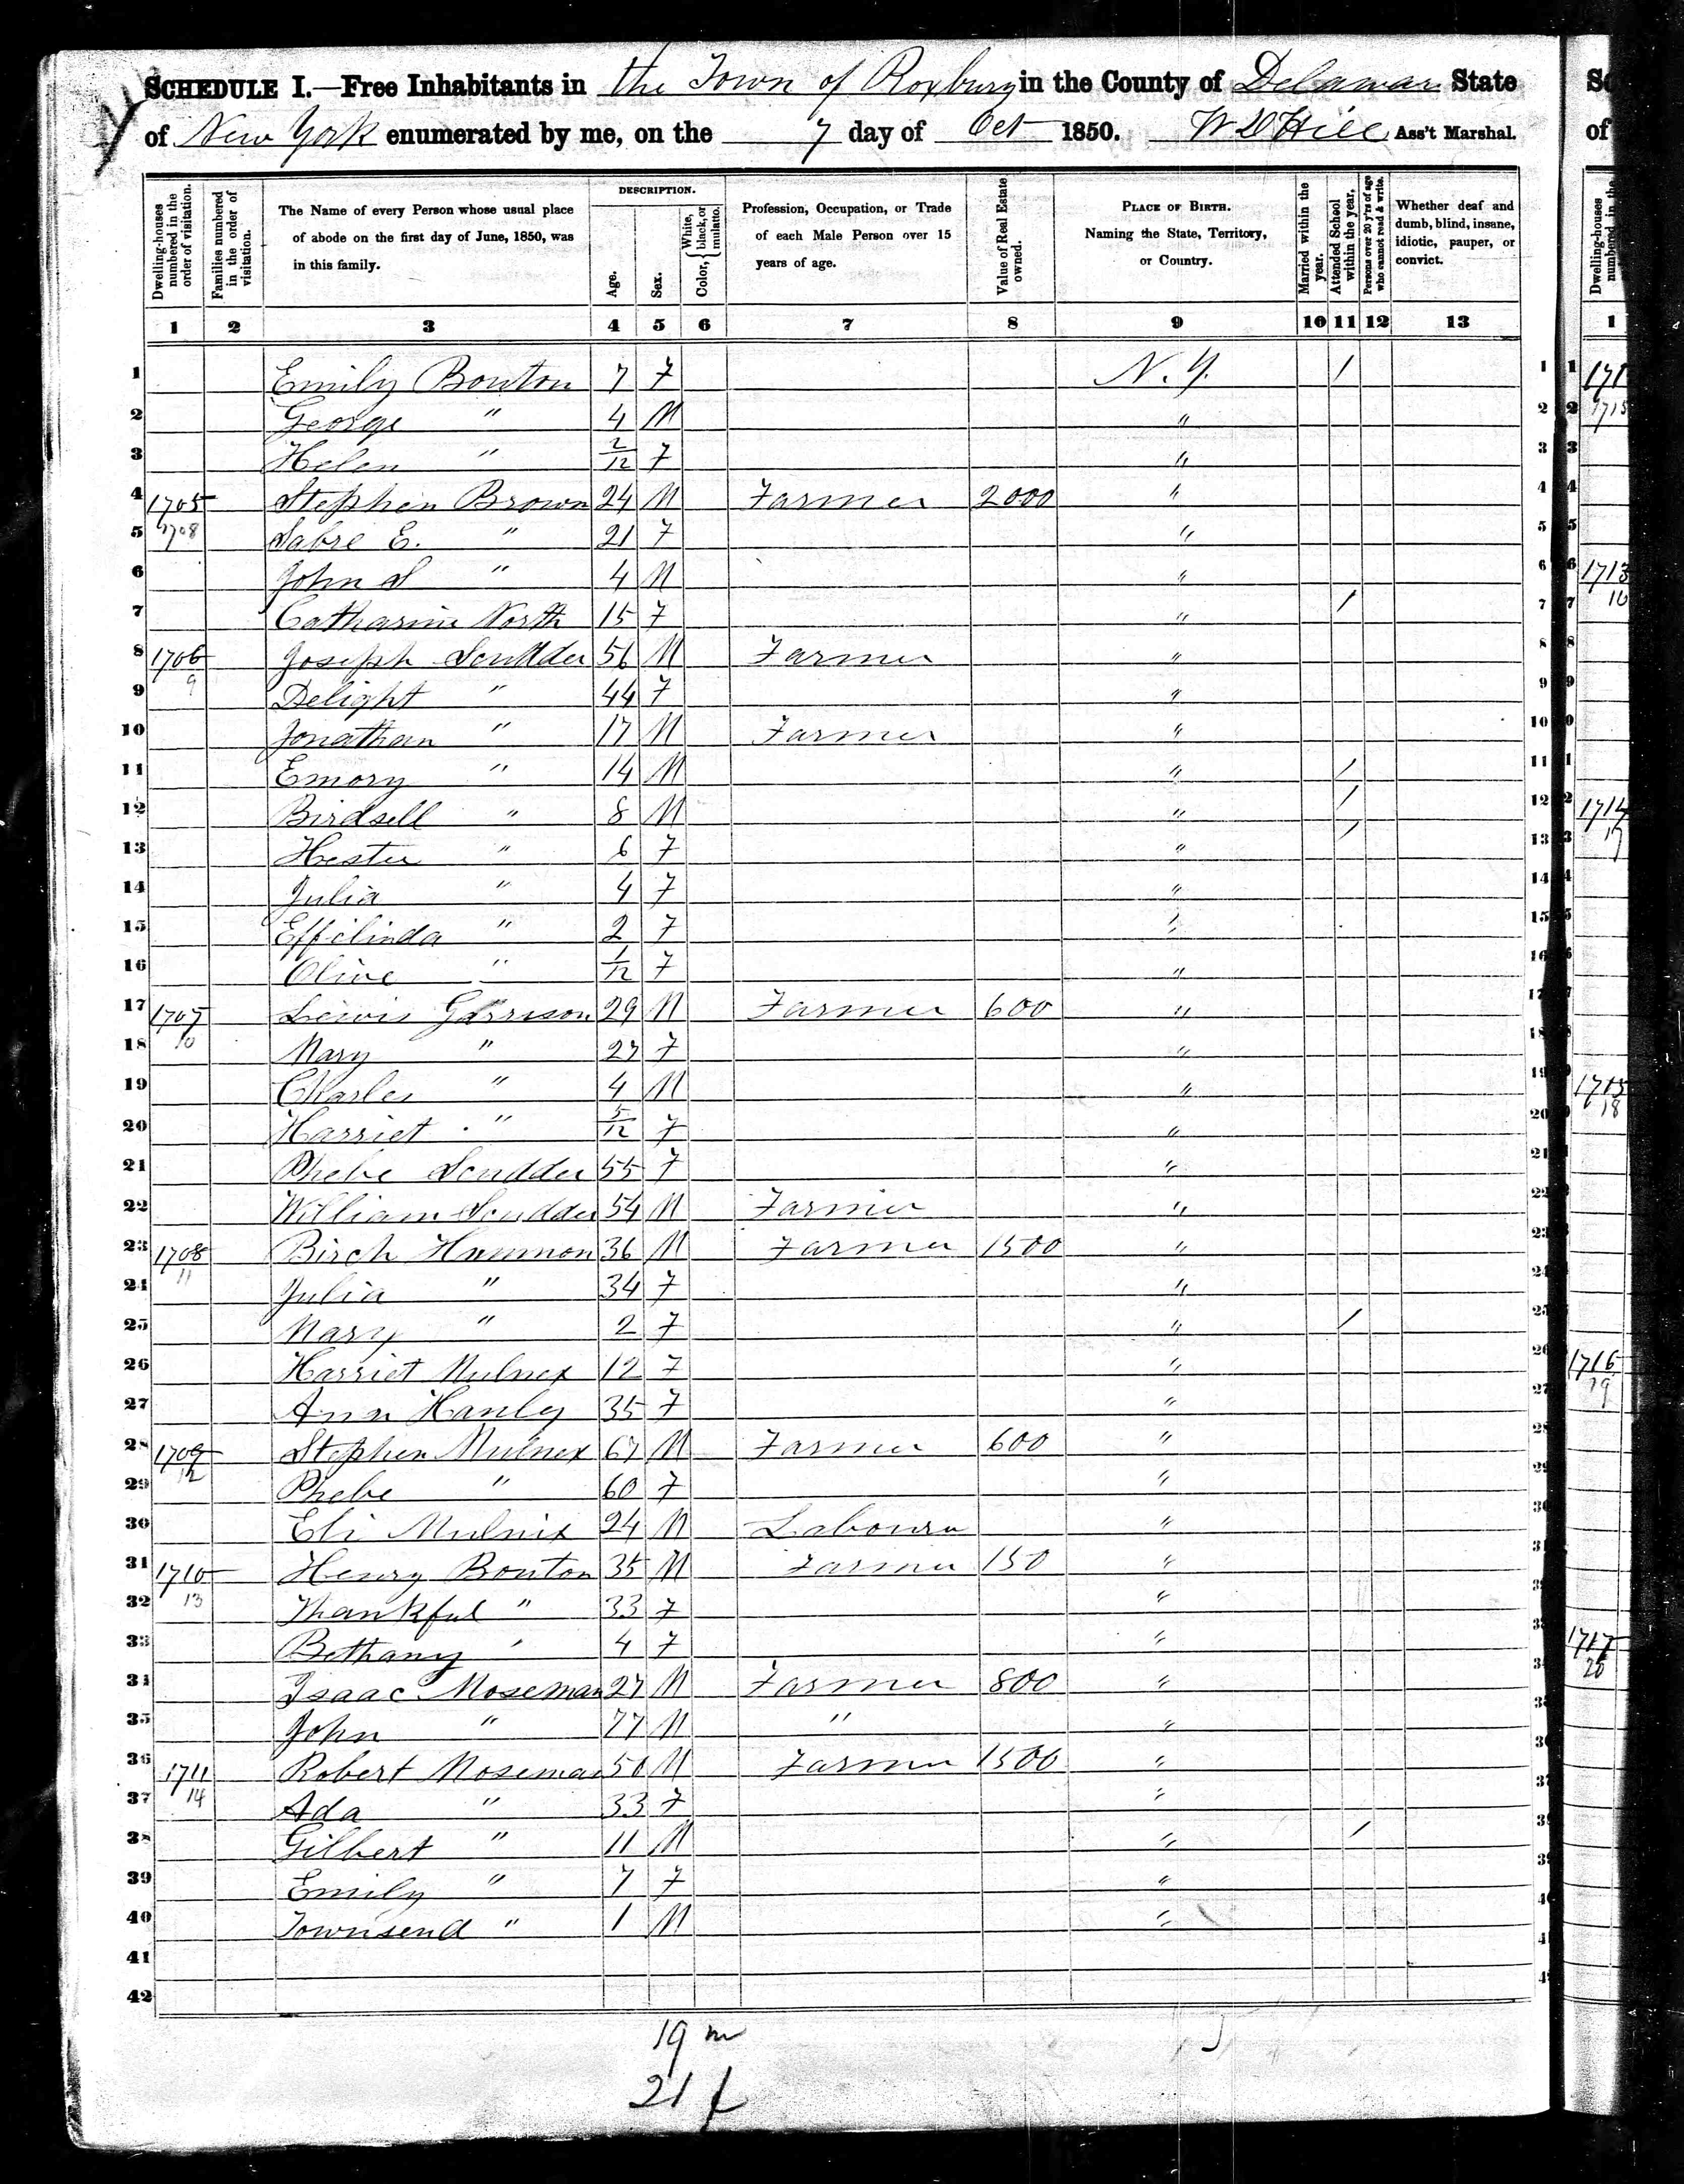 SCHEDULE I.—Free Inhabitants in the Town of Roxbury in the County of Delawar State
of New York enumerated by me, on the 7 day of Oct 1850. W D Hill Ass't Marshal.
Dwelling-houses numbered in the order of visitation.
Families numbered in the order of visitation.
The Name of every Person whose usual place of abode on the first day of June, 1850, was in this family.
DESCRIPTION.
Age.
Sex.
Color, { White, black, or mulatto.
Profession, Occupation, or Trade of each Male Person over 15 years of age.
Value of Real Estate owned.
PLACE OF BIRTH. Naming the State, Territory, or Country.
Married within the year.
Attended School within the year.
Persons over 20 y'rs of age who cannot read & write.
Whether deaf and dumb, blind, insane, idiotic, pauper, or convict.
1 2 3 4 5 6 7 8 9 10 11 12 13
1 Emily Bouton 7 F N.Y. / 1
2 George " 4 M " 2
3 Helen " 2/12 F " 3
4 1705 Stephen Brown 24 M Farmer 2000 " 4
5 1708 Sabre E. " 21 F " 5
6 John S " 4 M " 6
7 Catharine North 15 F " / 7
8 1706 Joseph Scudder 56 M Farmer " 8
9 9 Delight " 44 F " 9
10 Jonathan " 17 M Farmer " 10
11 Emory " 14 M " / 11
12 Birdsell " 8 M " / 12
13 Hester " 6 F " / 13
14 Julia " 4 F " 14
15 Effilinda " 2 F " 15
16 Olive " 1/12 F " 16
17 1707 Lewis Garrison 29 M Farmer 600 " 17
18 10 Mary " 27 F " 18
19 Charles " 4 M " 19
20 Harriet " 5/12 F " 20
21 Phebe Scudder 55 F " 21
22 William Scudder 54 M Farmer " 22
23 1708 Birch Hammon 36 M Farmer 1500 " 23
24 11 Julia " 34 F " 24
25 Mary " 2 F " / 25
26 Harriet Mulnex 12 F " 26
27 Ann Hanly 35 F " 27
28 1709 Stephen Mulnex 67 M Farmer 600 " 28
29 12 Phebe " 60 F " 29
30 Eli Mulnix 24 M Labourer " 30
31 1710 Henry Bouton 35 M Farmer 150 "
32 13 Thankful " 33 F "
33 Bethany " 4 F "
34 Isaac Moseman 27 M Farmer 800 "
35 John " 77 M " "
36 1711 Robert Moseman 50 M Farmer 1500 "
37 14 Ada " 33 F "
38 Gilbert " 11 M " /
39 Emily " 7 F "
40 Townsend " 1 M "
41
42
19 m
21 f
of
Dwelling-houses numbered in the
1
1713
16
1714
17
1715
18
1716
19
1717
20